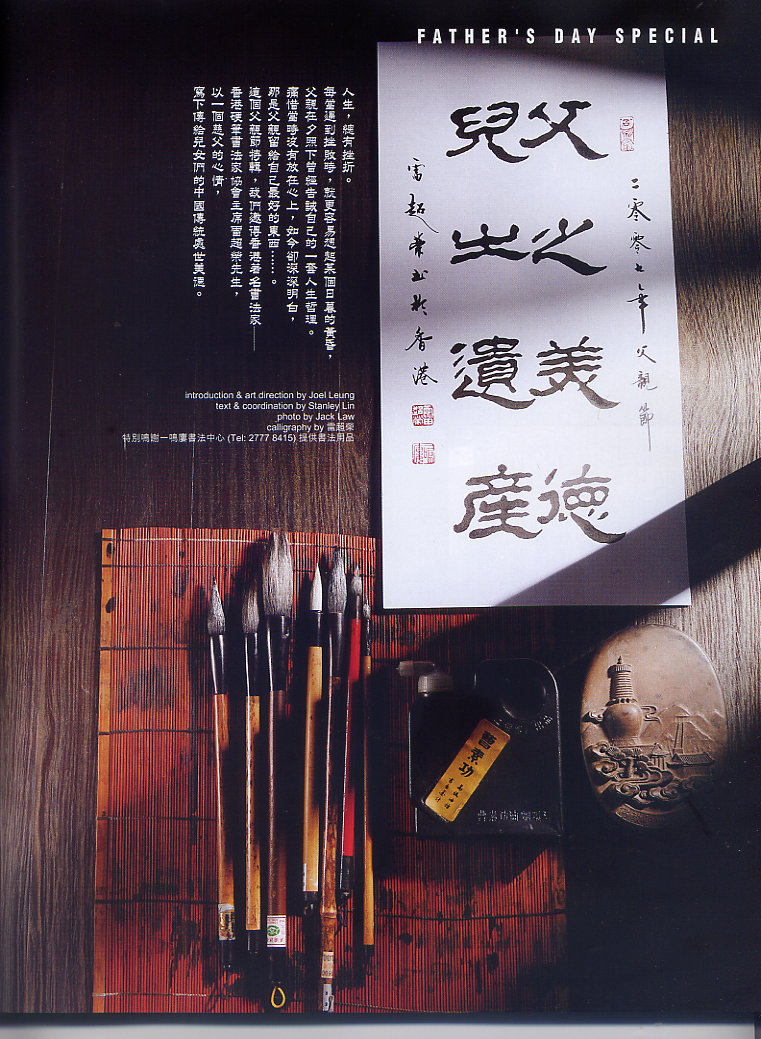 FATHER'S DAY SPECIAL
人生，總有挫折。
每當遇到挫敗時，就更容易想起某個日暮的黃昏，
父親在夕照下曾經告誡自己的一套人生哲理。
痛惜當時沒有放在心上，如今卻深深明白，
那是父親留給自己最好的東西……。
這個父親節特輯，我們邀得香港著名書法家——
香港硬筆書法家協會主席雷超榮先生，
以一個慈父的心情，
寫下傳給兒女們的中國傳統處世美德。
introduction & art direction by Joel Leung
text & coordination by Stanley Lin
photo by Jack Law
calligraphy by 雷超榮
特別鳴謝－鳴慶書法中心 (Tel: 2777 8415) 提供書法用品
二零零七年父親節
父之美德
兒之遺產
雷超榮書於香港
曹素功